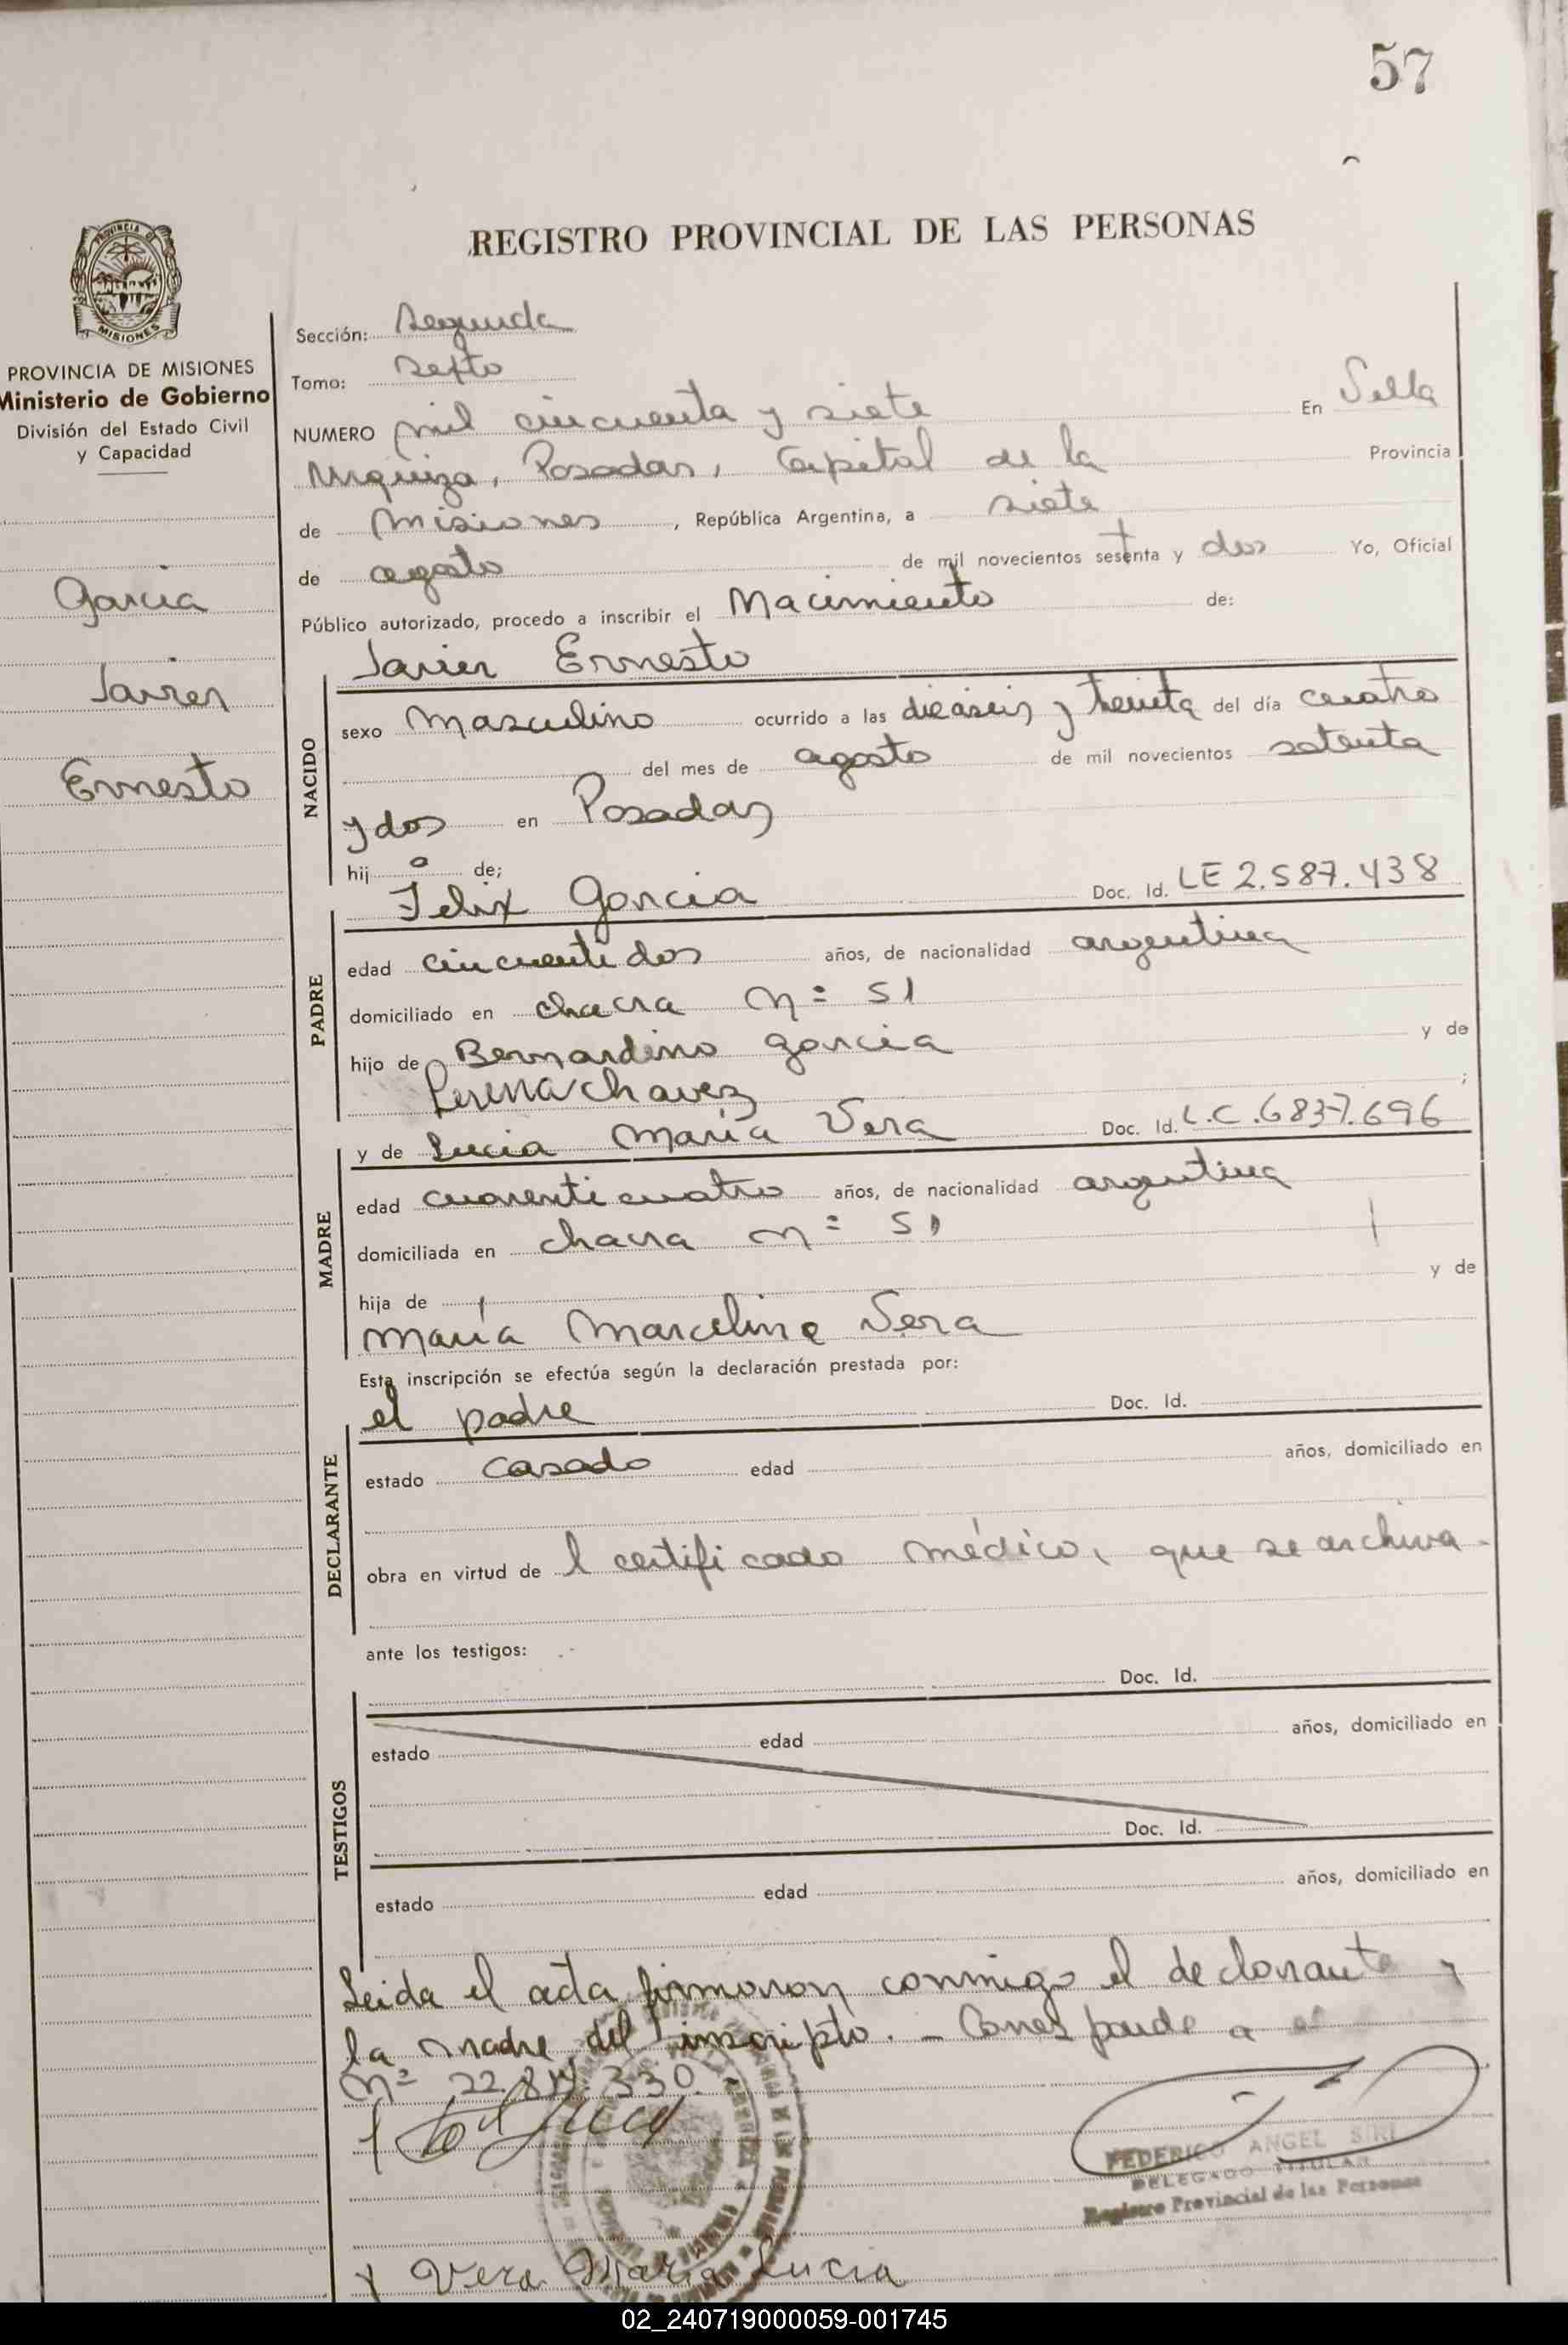 57
REGISTRO PROVINCIAL DE LAS PERSONAS
PROVINCIA DE MISIONES
Ministerio de Gobierno
División del Estado Civil
y Capacidad
Garcia
Javier
Ernesto
Sección: Segunda
Tomo: Sexto
NUMERO mil cincuenta y siete En Villa
Urquiza, Posadas, Capital de la Provincia
de Misiones, República Argentina, a siete
de agosto de mil novecientos setenta y dos Yo, Oficial
Público autorizado, procedo a inscribir el Nacimiento de:
Javier Ernesto
NACIDO
sexo Masculino ocurrido a las dieciseis y treinta del día cuatro
del mes de agosto de mil novecientos setenta
y dos en Posadas
hijo de;
Felix Garcia Doc. Id. LE 2.587.438
PADRE
edad cincuentidos años, de nacionalidad argentina
domiciliado en chacra Nº 51
hijo de Bernardino Garcia y de
Chavez;
y de Lucia María Vera Doc. Id. L.C.6837.696
MADRE
edad cuarenticuatro años, de nacionalidad argentina
domiciliada en chacra Nº 51
hija de y de
María Marcelina Vera
Esta inscripción se efectúa según la declaración prestada por:
el padre Doc. Id.
DECLARANTE
estado casado edad años, domiciliado en
obra en virtud de l certificado médico, que se archiva.
ante los testigos:
Doc. Id.
TESTIGOS
estado edad años, domiciliado en
Doc. Id.
estado edad años, domiciliado en
Leida el acta firmaron conmigo el declarante y
la madre del inscripto. - Corresponde a
Nº 22.
FEDERICO ANGEL SIRI
DELEGADO TITULAR
Registro Provincial de las Personas
Vera Maria Lucia
02_240719000059-001745